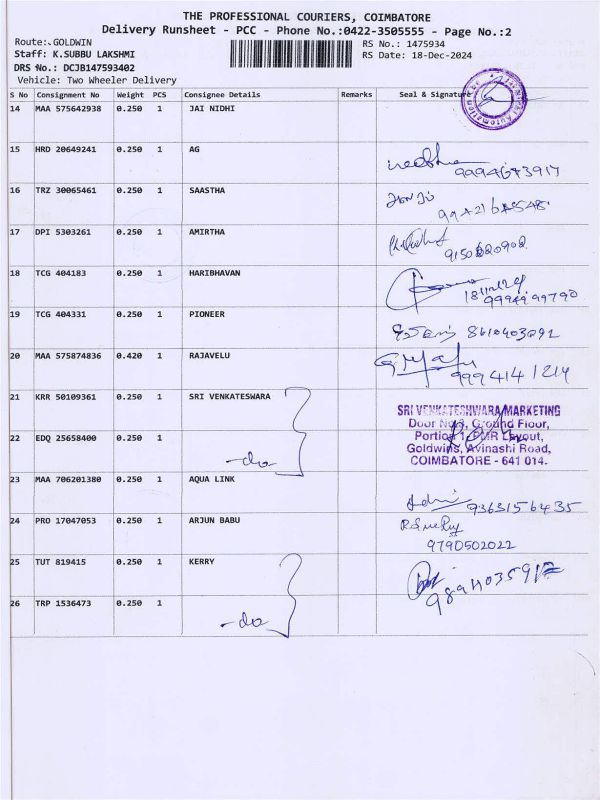 THE PROFESSIONAL COURIERS, COIMBATORE
Delivery Runsheet - PCC - Phone No.:0422-3505555 - Page No.:2
Route: GOLDWIN
Staff: K.SUBBU LAKSHMI
DRS No.: DCJB147593402
Vehicle: Two Wheeler Delivery
RS No.: 1475934
RS Date: 18-Dec-2024
S No Consignment No Weight PCS Consignee Details Remarks Seal & Signature
14 MAA 575642938 0.250 1 JAI NIDHI
15 HRD 20649241 0.250 1 AG
9994673917
16 TRZ 30065461 0.250 1 SAASTHA
17 DPI 5303261 0.250 1 AMIRTHA
18 TCG 404183 0.250 1 HARIBHAVAN
19 TCG 404331 0.250 1 PIONEER
8610403092
20 MAA 575874836 0.420 1 RAJAVELU
9994141214
21 KRR 50109361 0.250 1 SRI VENKATESWARA
SRI VENKATESHWARA MARKETING
Door No.3, Ground Floor,
Portion 1, PMR Layout,
Goldwins, Avinashi Road,
COIMBATORE - 641 014.
22 EDQ 25658400 0.250 1
-do
23 MAA 706201380 0.250 1 AQUA LINK
9363156435
24 PRO 17047053 0.250 1 ARJUN BABU
9790502022
25 TUT 819415 0.250 1 KERRY
26 TRP 1536473 0.250 1
-do